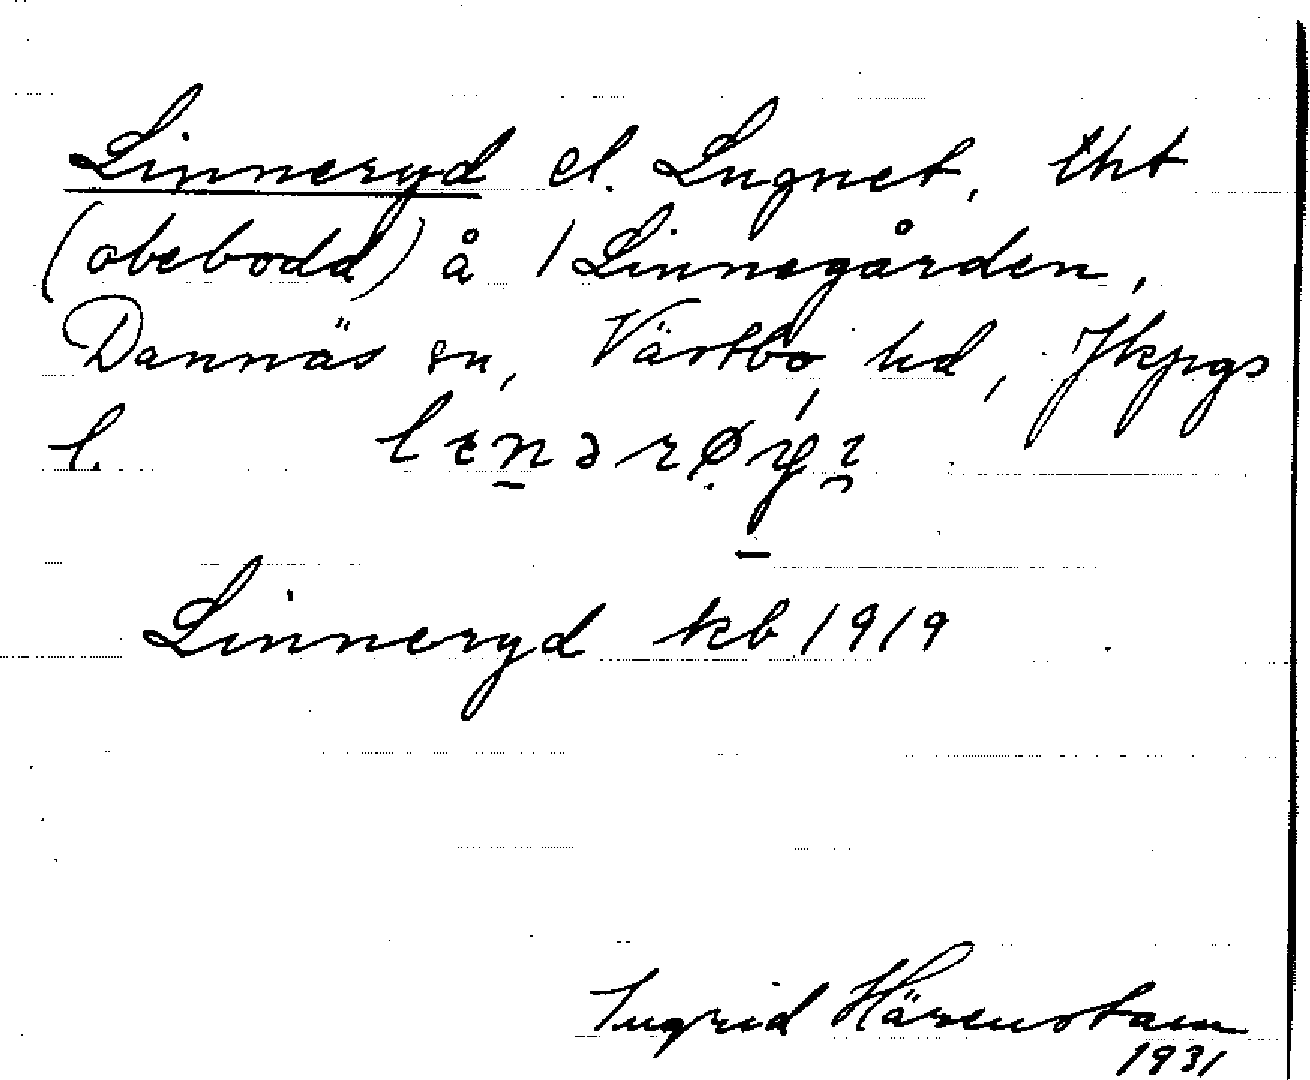 Linneryd el. Lugnet, lht
(obebodd) å 1 Linnegården,
Dannäs sn, Västbo hd, Jkpgs
l.
Linneryd kb 1919
Ingrid Härenstam
1931